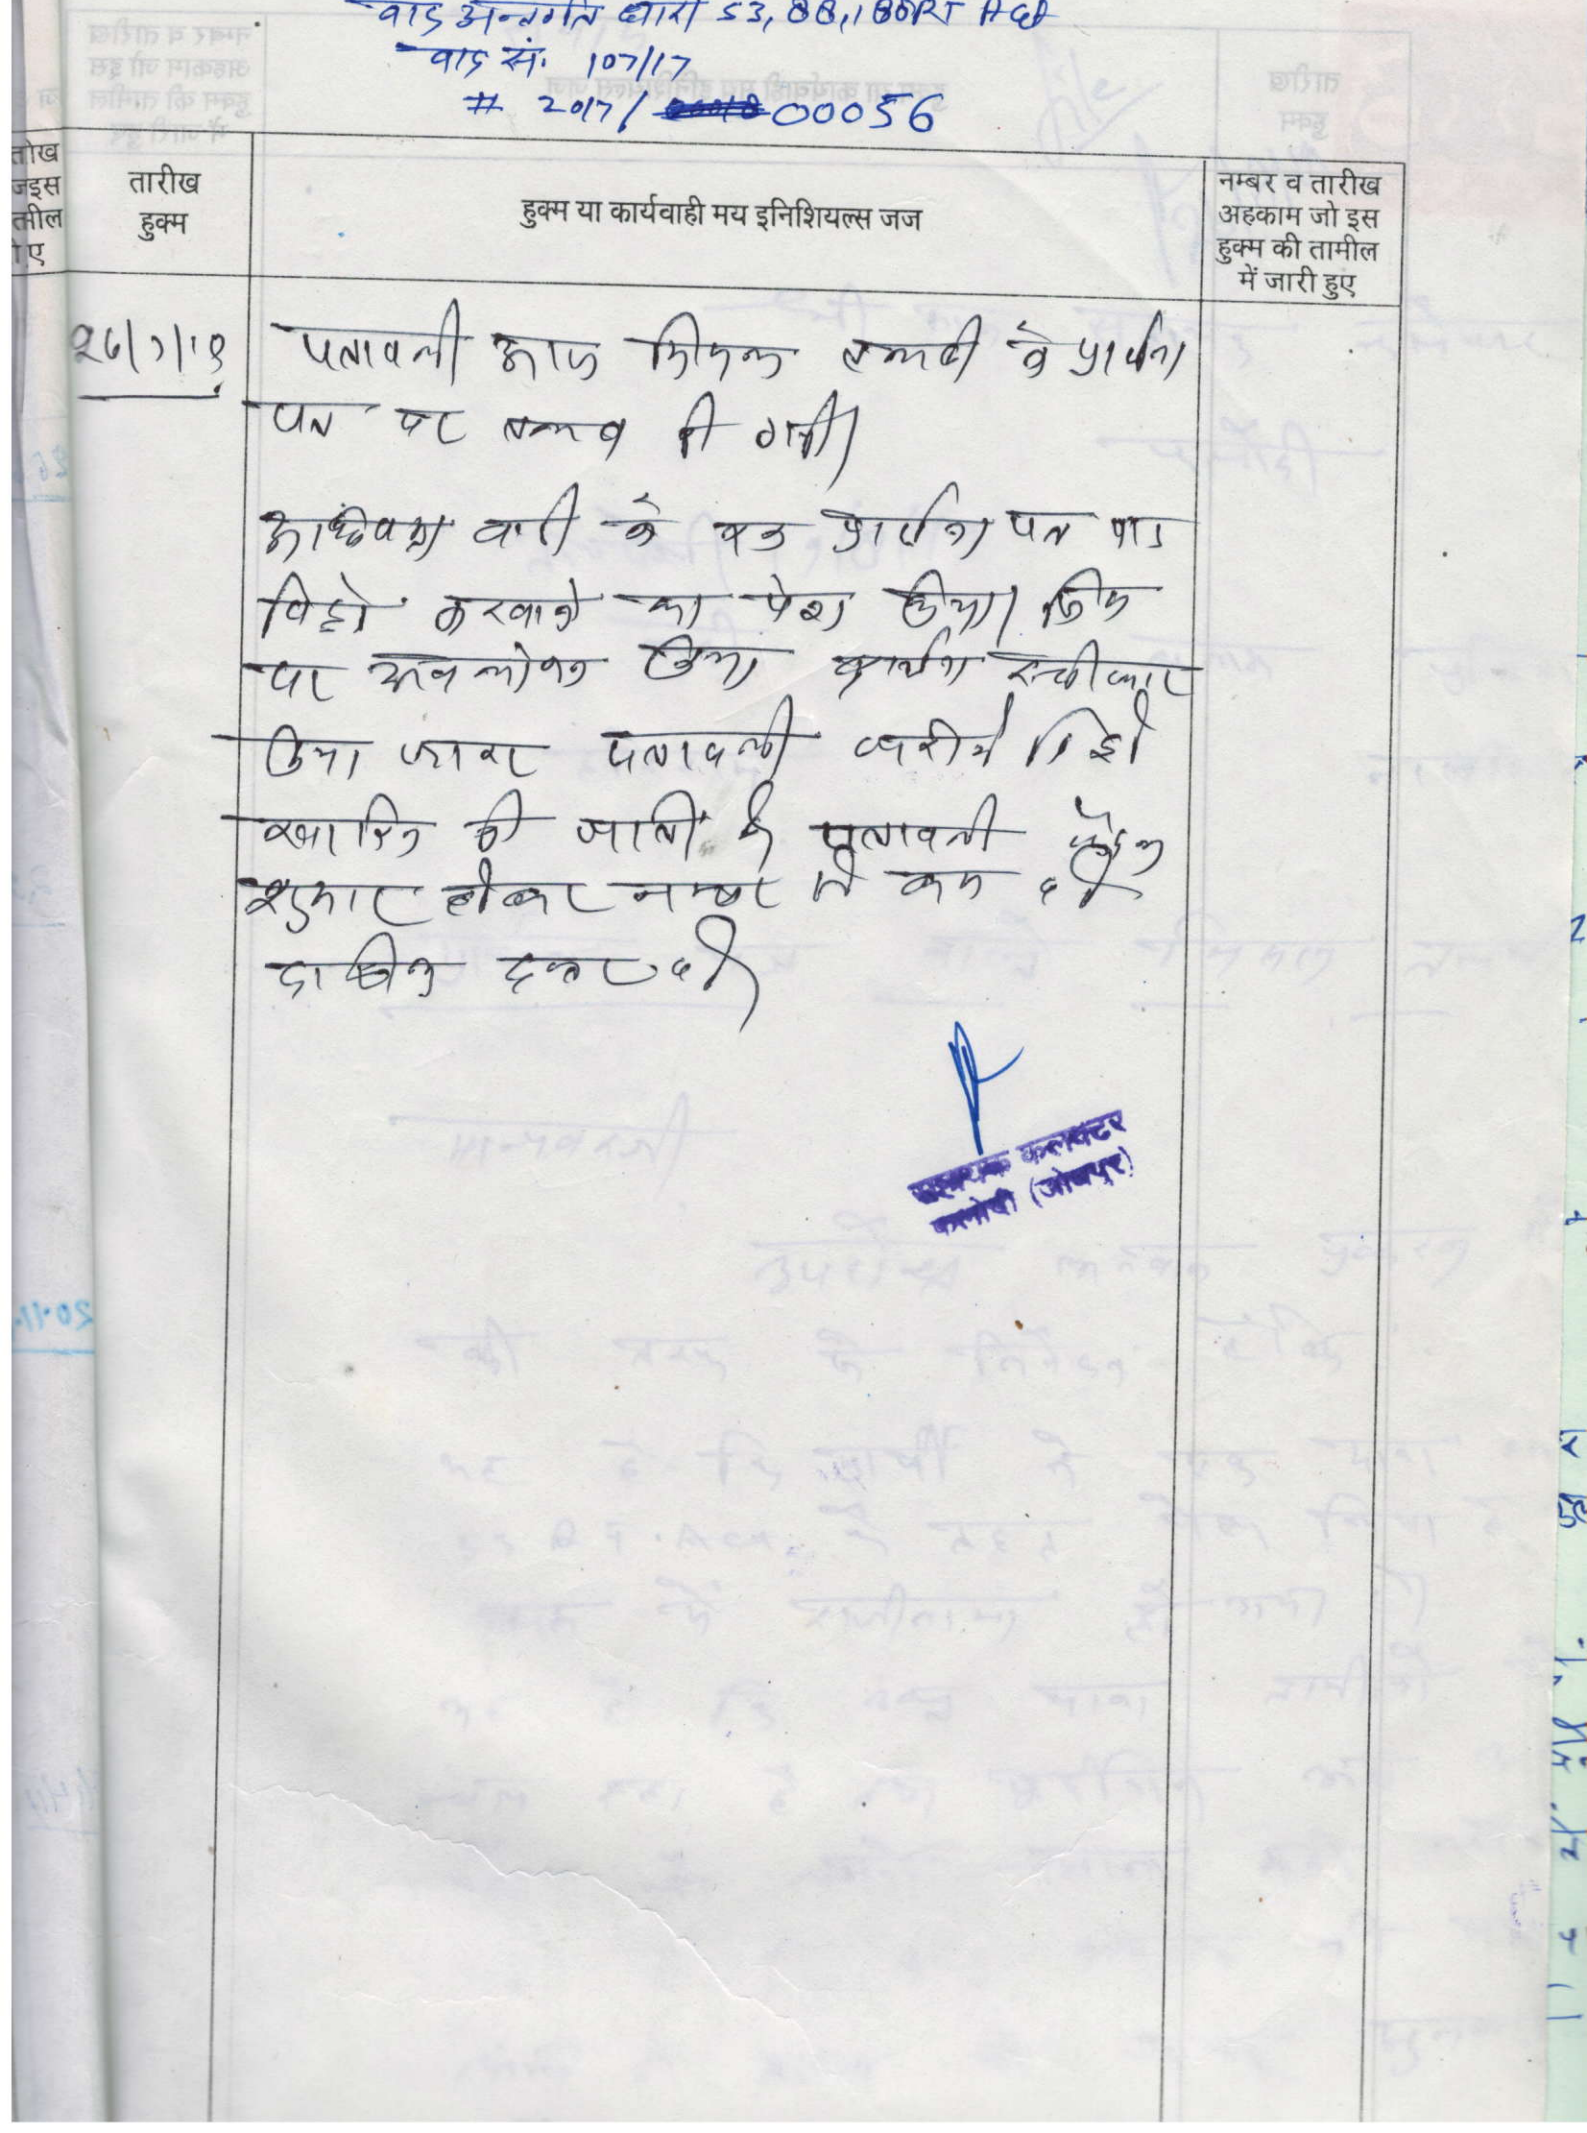 वाद अन्तर्गत धारा 53, 88, 188 RT Act
वाद सं. 107/17
# 2017/ 00056
तारीख
हुक्म
हुक्म या कार्यवाही मय इनिशियल्स जज
नम्बर व तारीख
अहकाम जो इस
हुक्म की तामील
में जारी हुए
पत्रावली आज तलबी के प्रार्थना
पत्र पर तलब की गयी।
अधिवक्ता वादी ने एक प्रार्थना पत्र वाद
विड्रो करवाने का पेश किया। जिस
पर अवलोकन किया प्रार्थना स्वीकार
किया जाकर पत्रावली जरीये विड्रो
खारिज की जाती है पत्रावली फैसल
शुमार होकर नम्बर से कम हो
दाखिल दफ्तर हो।
सहायक कलक्टर
फलोदी (जोधपुर)